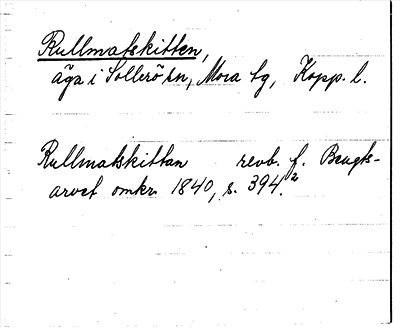 Rullmatskitten,
äga i Sollerö sn, Mora tg, Kopp. l.
Rullmatskittan revb. f. Bengts-
arvet omkr. 1840, s. 394.²